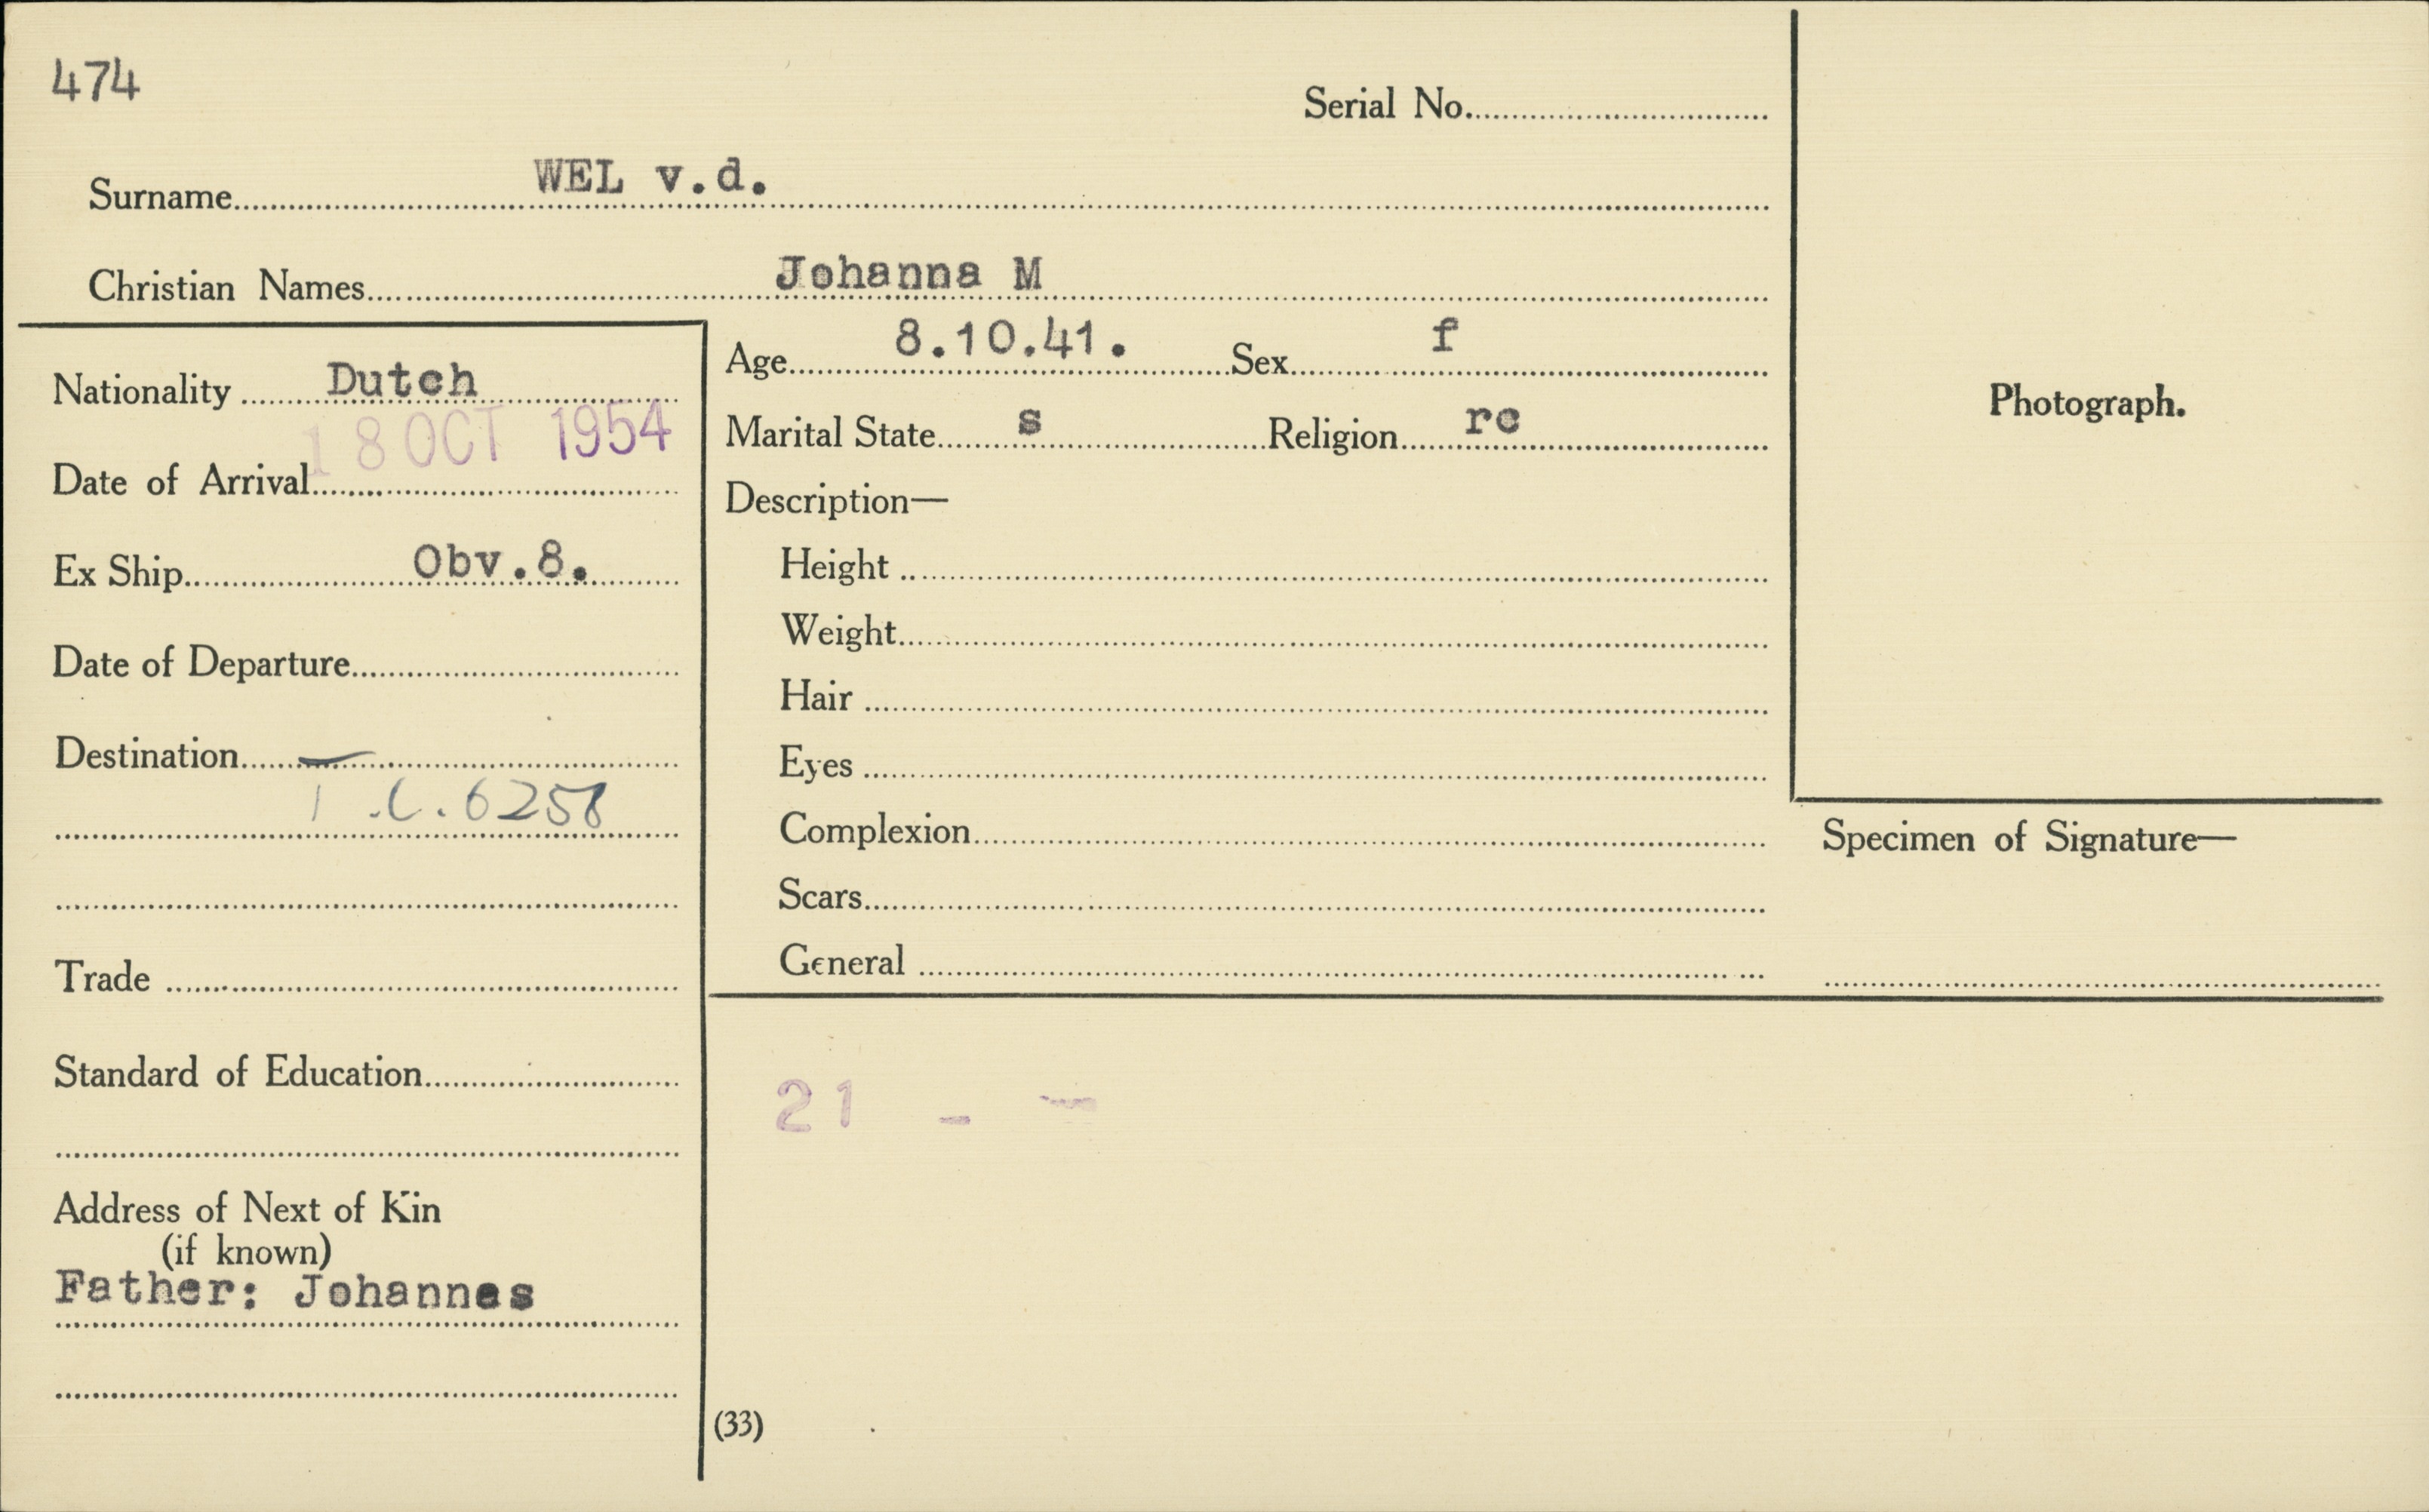 474
Serial No.
Surname WEL v.d.
Christian Names Johanna M
Nationality Dutch
18 OCT 1954
Date of Arrival
Ex Ship Obv.8.
Date of Departure
Destination
T.C. 6258
Trade
Standard of Education
Address of Next of Kin
(if known)
Father: Johannes
Age 8.10.41. Sex f
Marital State s Religion rc
Description—
Height
Weight
Hair
Eyes
Complexion
Scars
General
21 -
(33)
Photograph.
Specimen of Signature—